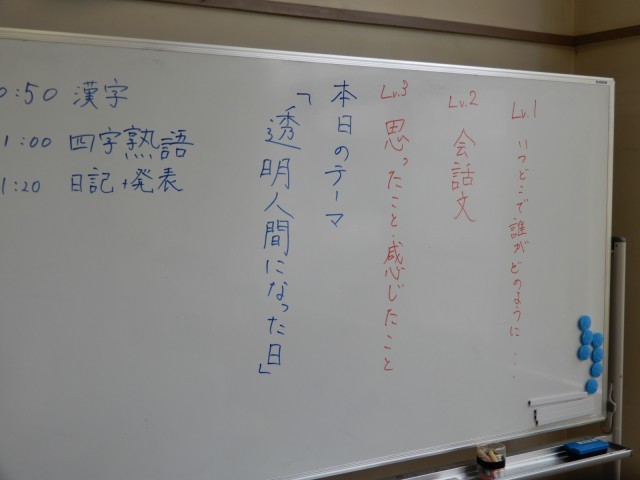 Lv.1 いつどこで誰がどのように...
Lv.2 会話文
Lv.3 思ったこと・感じたこと
本日のテーマ
「透明人間になった日」
0:50 漢字
1:00 四字熟語
1:20 日記+発表